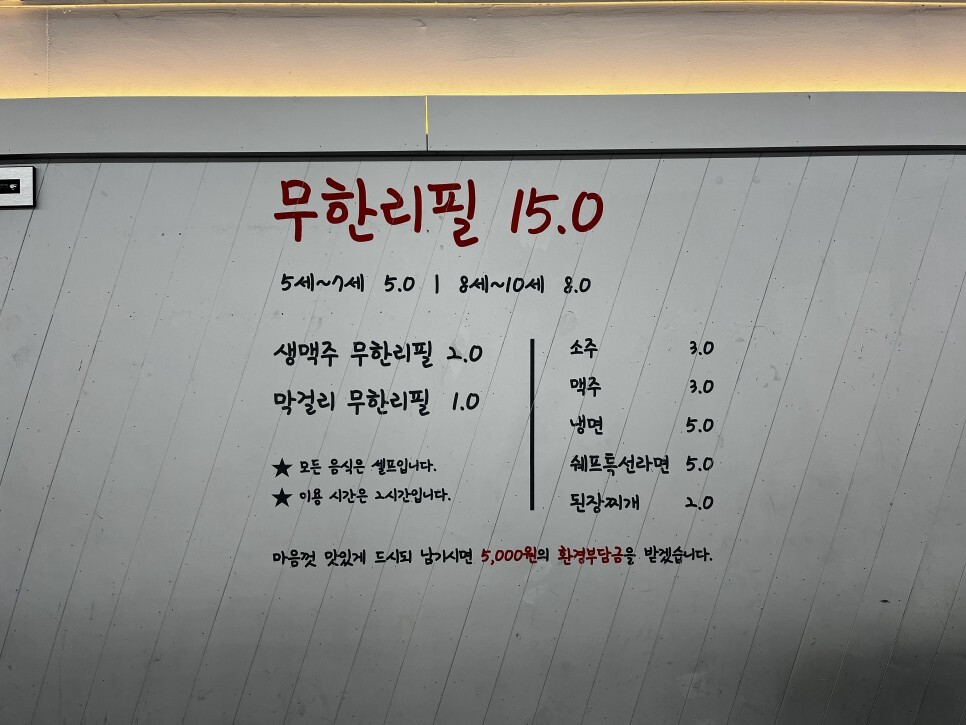 무한리필 15.0
5세~7세 5.0 | 8세~10세 8.0
생맥주 무한리필 2.0
막걸리 무한리필 1.0
★ 모든 음식은 셀프입니다.
★ 이용 시간은 2시간입니다.
소주 3.0
맥주 3.0
냉면 5.0
쉐프특선라면 5.0
된장찌개 2.0
마음껏 맛있게 드시되 남기시면 5,000원의 환경부담금을 받겠습니다.